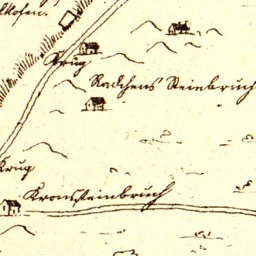 lkofen.
Krug
Radchens Steinbruch
Krug
Kronssteinbruch